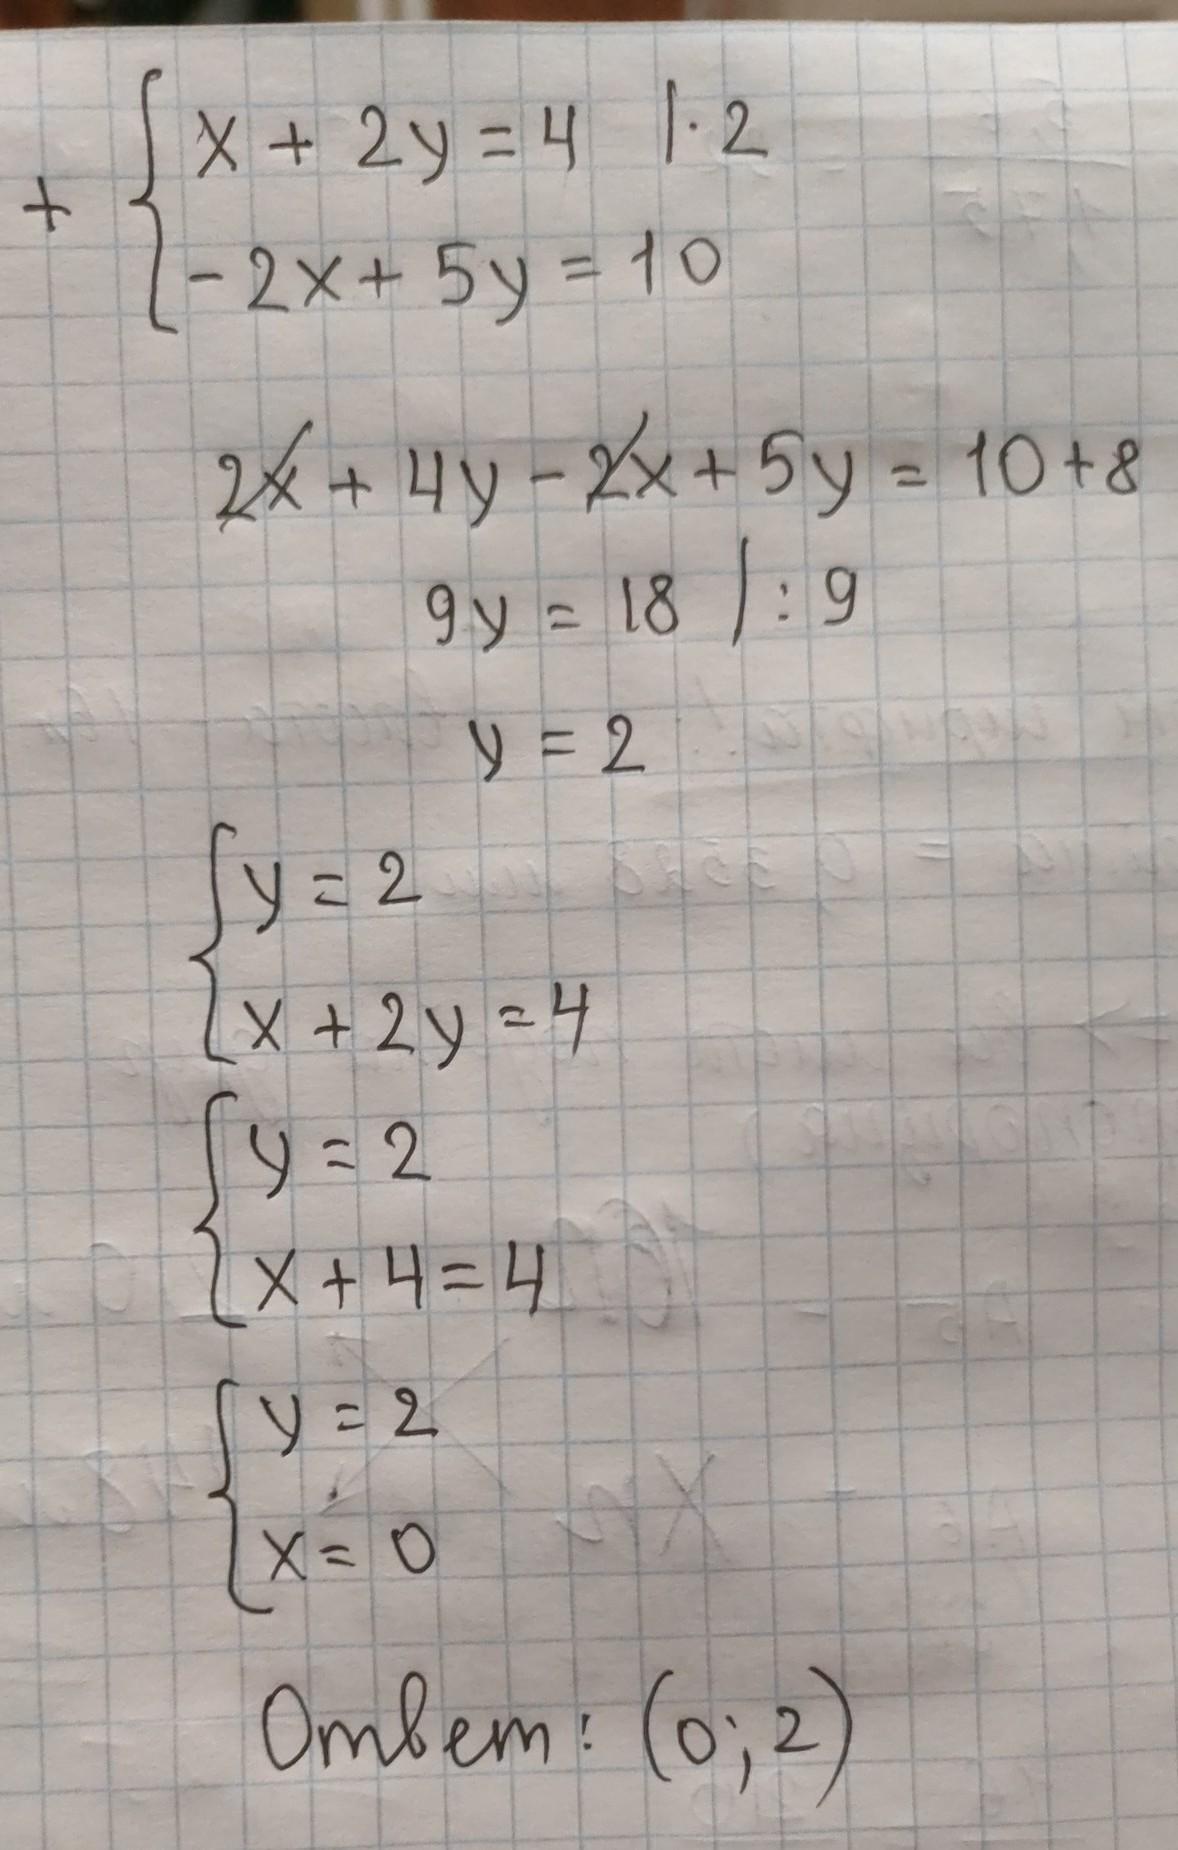 x + 2y = 4 |·2
+
-2x + 5y = 10
2x + 4y - 2x + 5y = 10 + 8
9y = 18 | : 9
y = 2
y = 2
x + 2y = 4
y = 2
x + 4 = 4
y = 2
x = 0
Ответ: (0; 2)